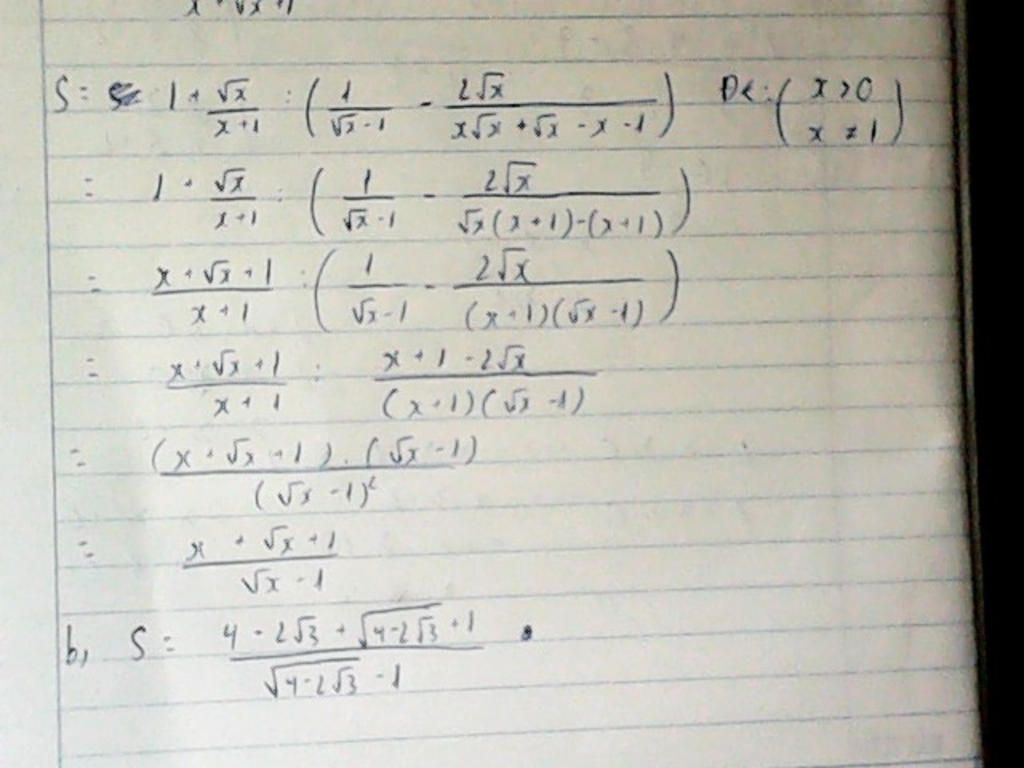 x + √x + 1
S = 1 + √x/(x+1) : ( 1/(√x-1) - 2√x/(x√x + √x - x - 1) ) ĐK: ( x > 0
x ≠ 1 )
= 1 + √x/(x+1) : ( 1/(√x-1) - 2√x/(√x(x+1)-(x+1)) )
= (x + √x + 1)/(x+1) : ( 1/(√x-1) - 2√x/((x+1)(√x-1)) )
= (x + √x + 1)/(x+1) : (x+1-2√x)/((x+1)(√x-1))
= (x + √x + 1).(√x-1)/(√x-1)²
= (x + √x + 1)/(√x-1)
b, S = (4-2√3 + √(4-2√3) + 1)/(√(4-2√3) - 1)